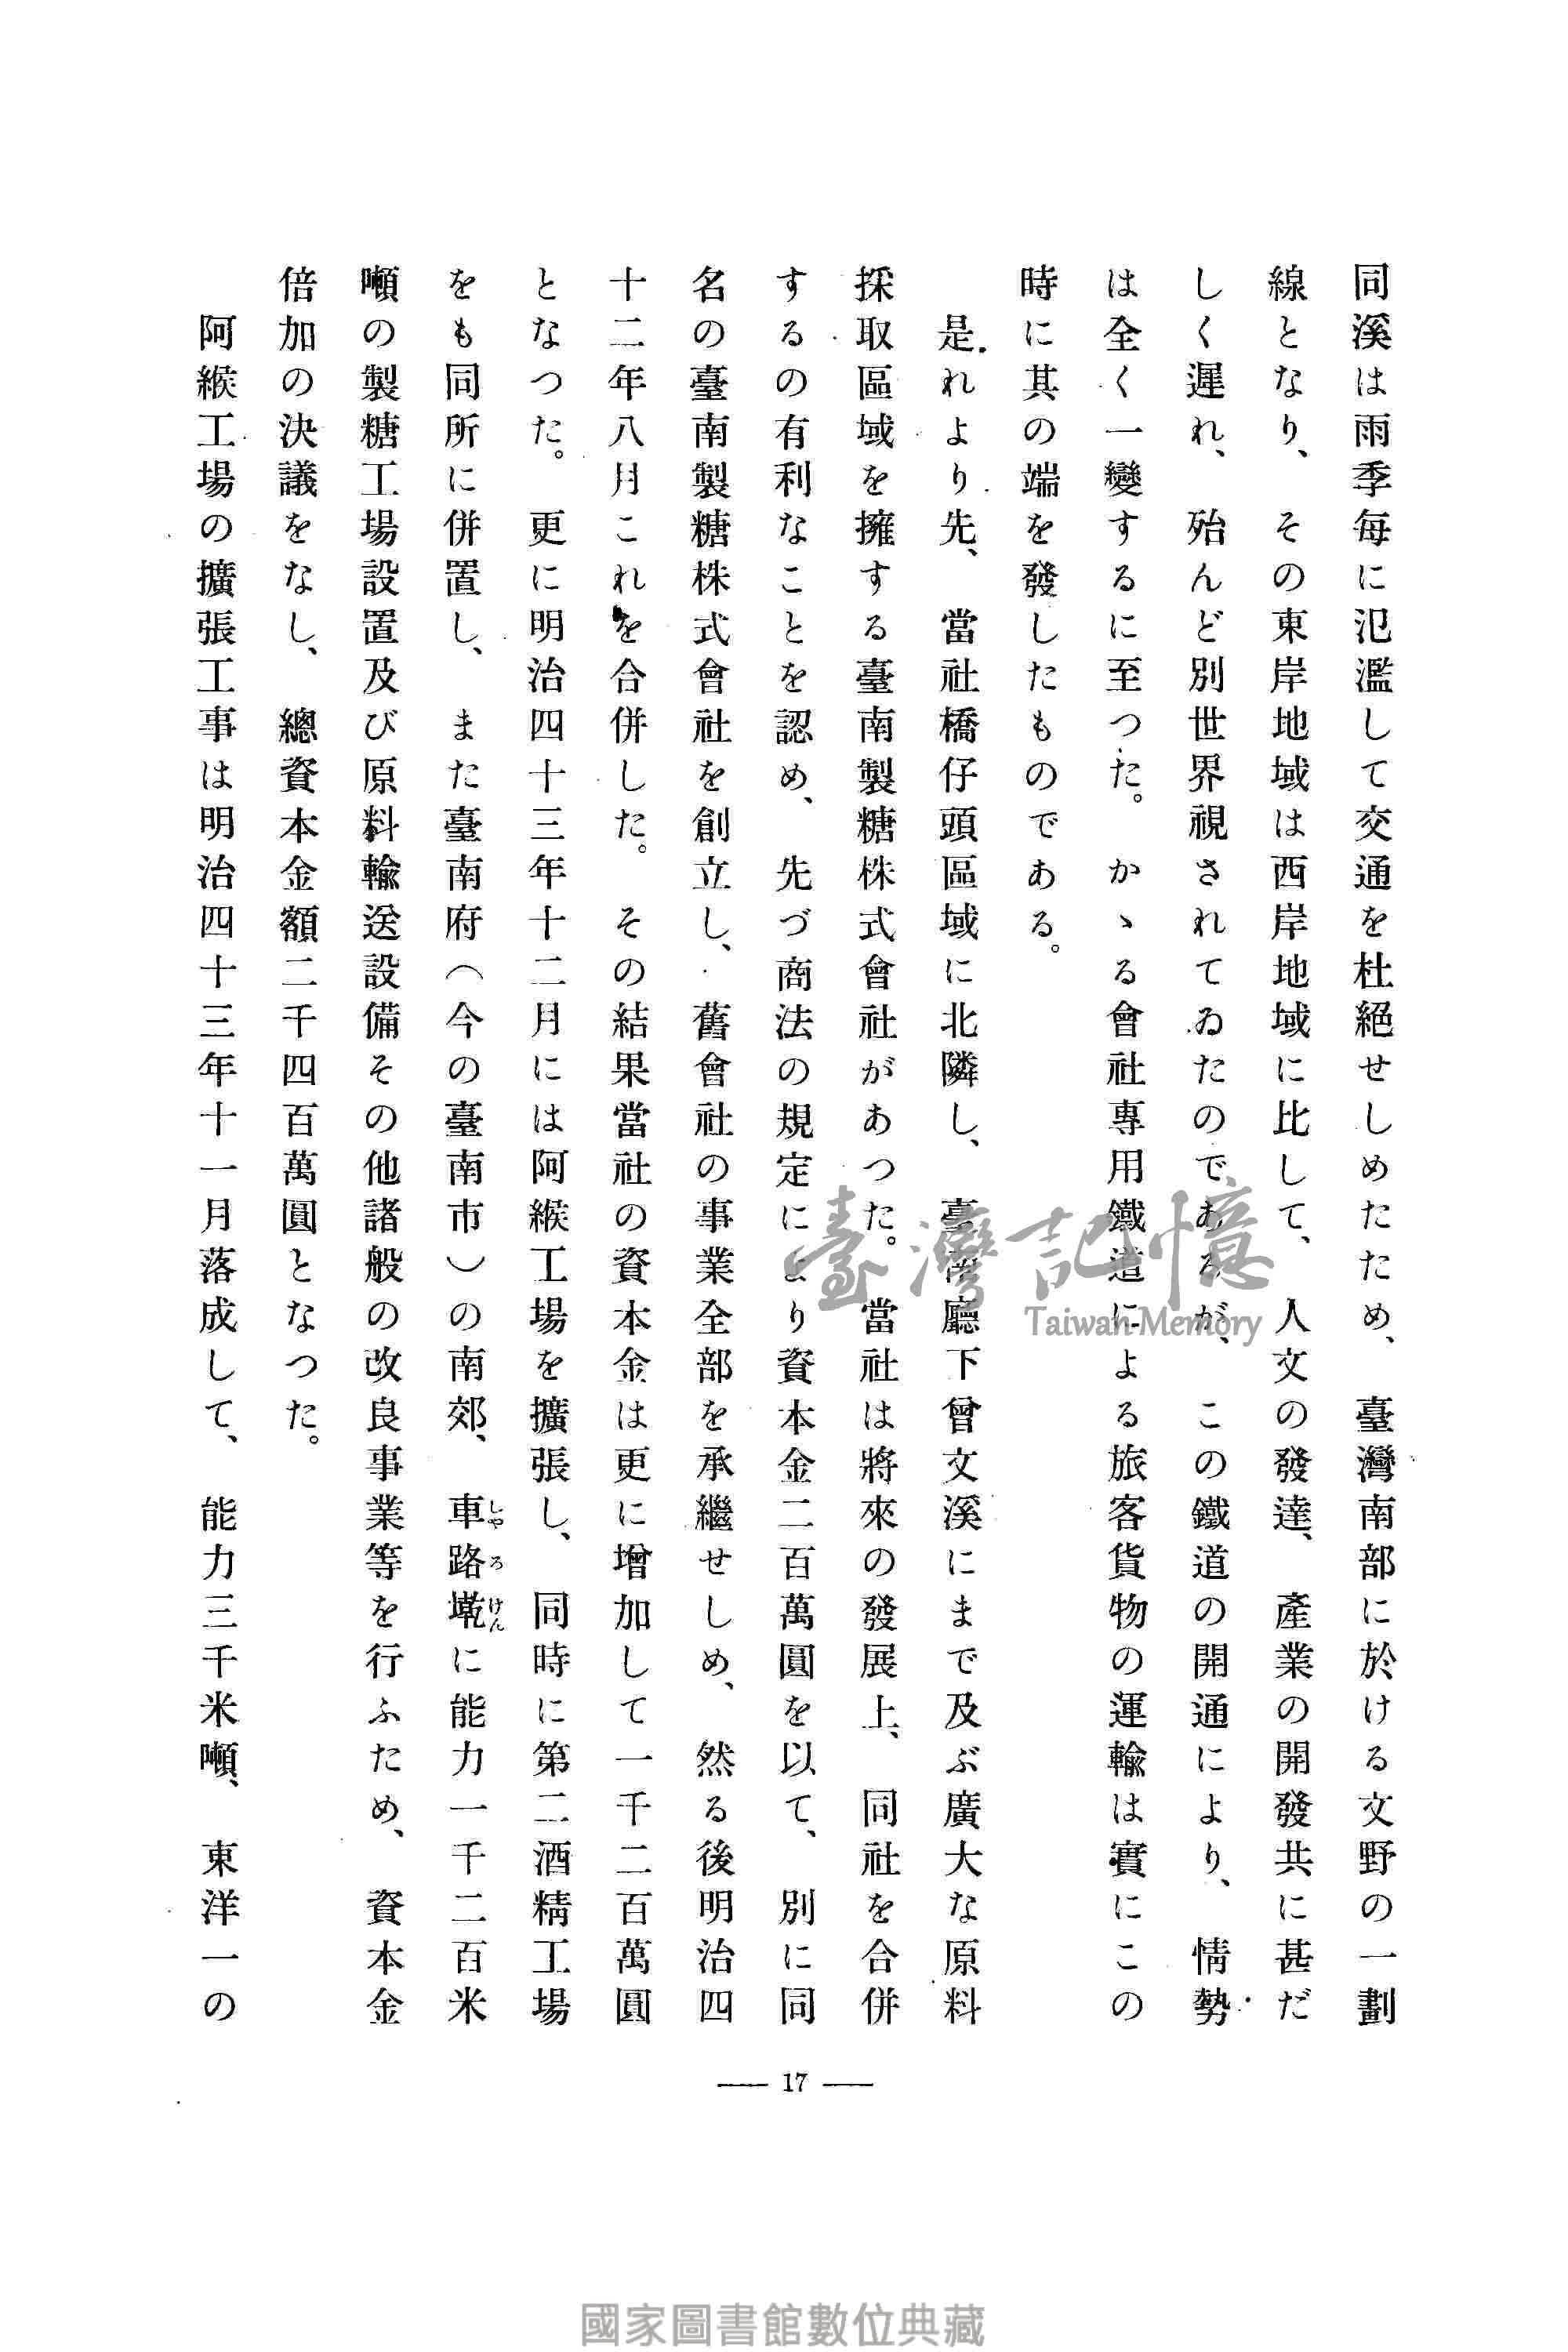 同溪は雨季每に氾濫して交通を杜絕せしめたため、臺灣南部に於ける文野の一劃
線となり、その東岸地域は西岸地域に比して、人文の發達、產業の開發共に甚だ
しく遲れ、殆んど別世界視されてゐたのであるが、この鐵道の開通により、情勢
は全く一變するに至つた。かゝる會社專用鐵道による旅客貨物の運輸は實にこの
時に其の端を發したものである。
是れより先、當社橋仔頭區域に北隣し、臺南廳下曾文溪にまで及ぶ廣大な原料
採取區域を擁する臺南製糖株式會社があつた。當社は將來の發展上、同社を合併
するの有利なことを認め、先づ商法の規定により資本金二百萬圓を以て、別に同
名の臺南製糖株式會社を創立し、舊會社の事業全部を承繼せしめ、然る後明治四
十二年八月これを合併した。その結果當社の資本金は更に增加して一千二百萬圓
となつた。更に明治四十三年十二月には阿緱工場を擴張し、同時に第二酒精工場
をも同所に併置し、また臺南府（今の臺南市）の南郊、車路墘に能力一千二百米
しやろけん
噸の製糖工場設置及び原料輸送設備その他諸般の改良事業等を行ふため、資本金
倍加の決議をなし、總資本金額二千四百萬圓となつた。
阿緱工場の擴張工事は明治四十三年十一月落成して、能力三千米噸、東洋一の
— 17 —
臺灣記憶
Taiwan Memory
國家圖書館數位典藏